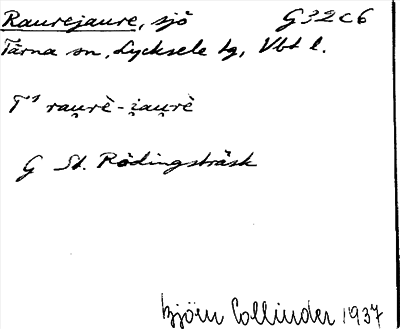 Raurejaure, sjö G32c6
Tärna sn, Lycksele lg, Vbt l.
T¹ rau̯rè-i̯au̯rè
G St. Rödingsträsk
Björn Collinder 1937